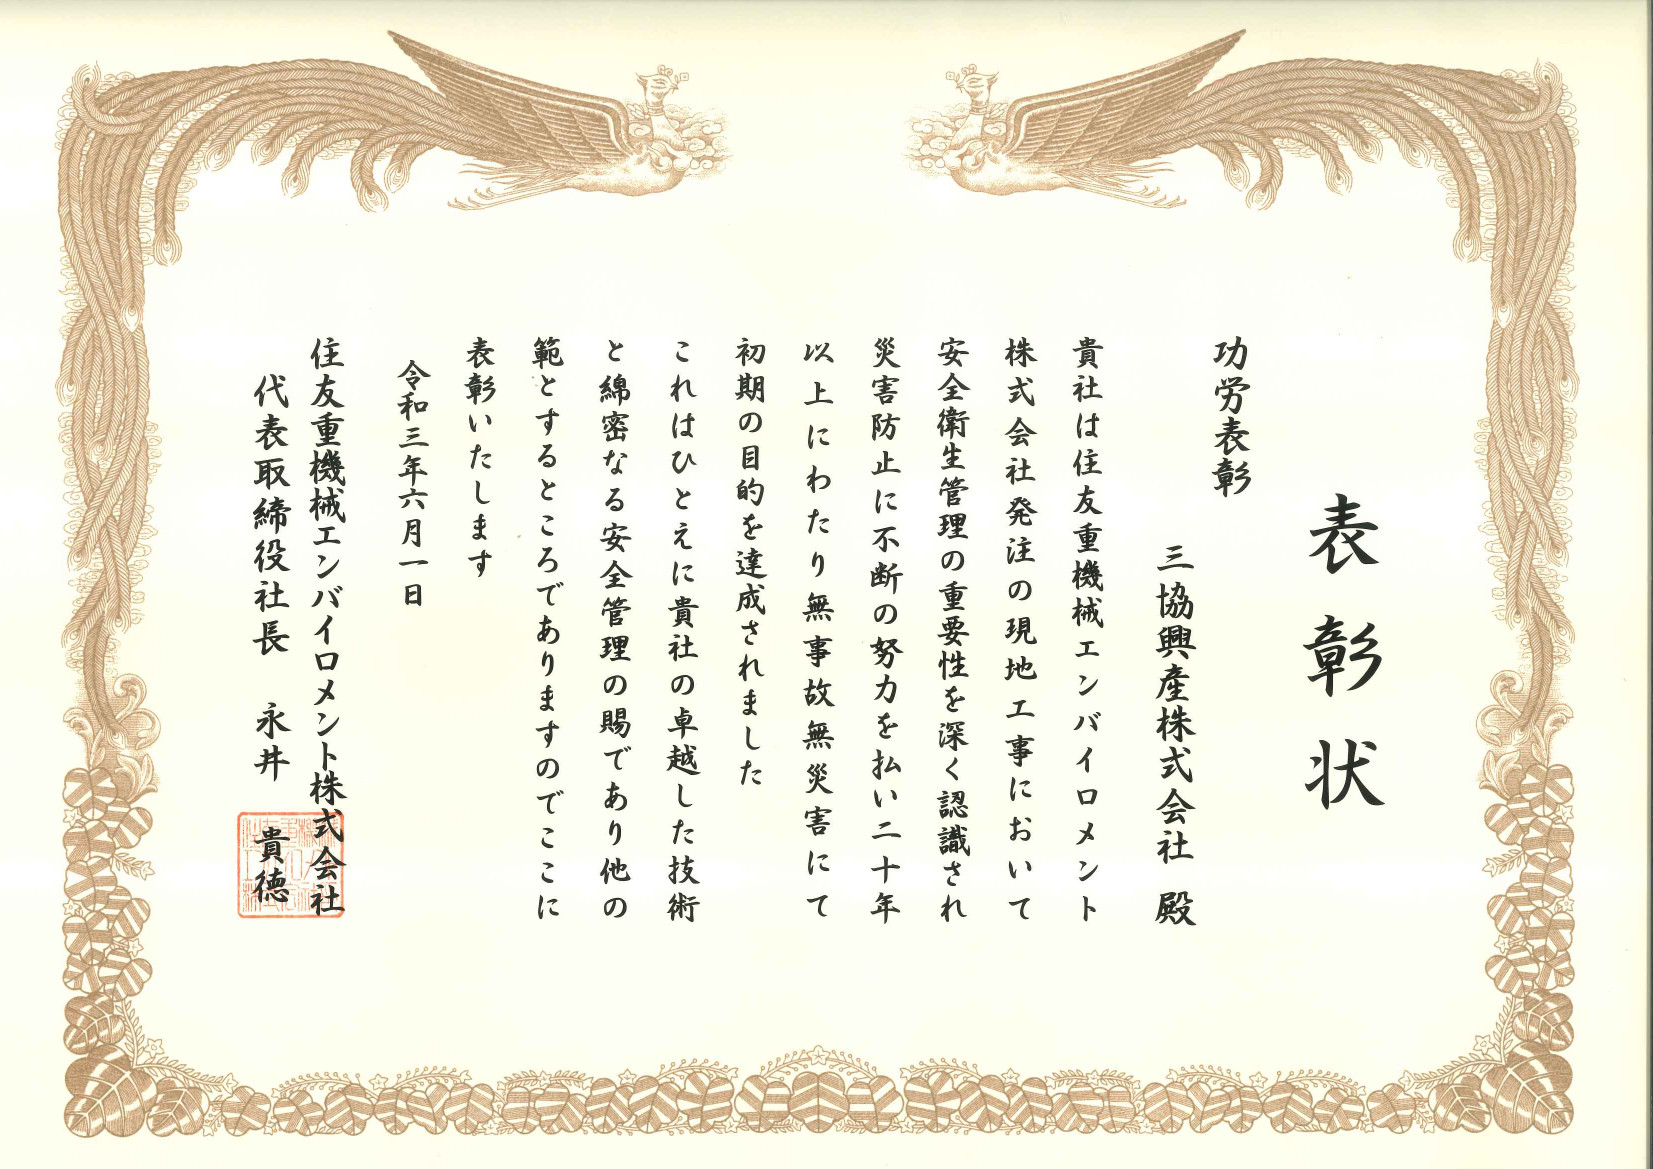 表彰状
功労表彰
三協興産株式会社 殿
貴社は住友重機械エンバイロメント
株式会社発注の現地工事において
安全衛生管理の重要性を深く認識され
災害防止に不断の努力を払い二十年
以上にわたり無事故無災害にて
初期の目的を達成されました
これはひとえに貴社の卓越した技術
と綿密なる安全管理の賜であり他の
範とするところでありますのでここに
表彰いたします
令和三年六月一日
住友重機械エンバイロメント株式会社
代表取締役社長 永井 貴徳